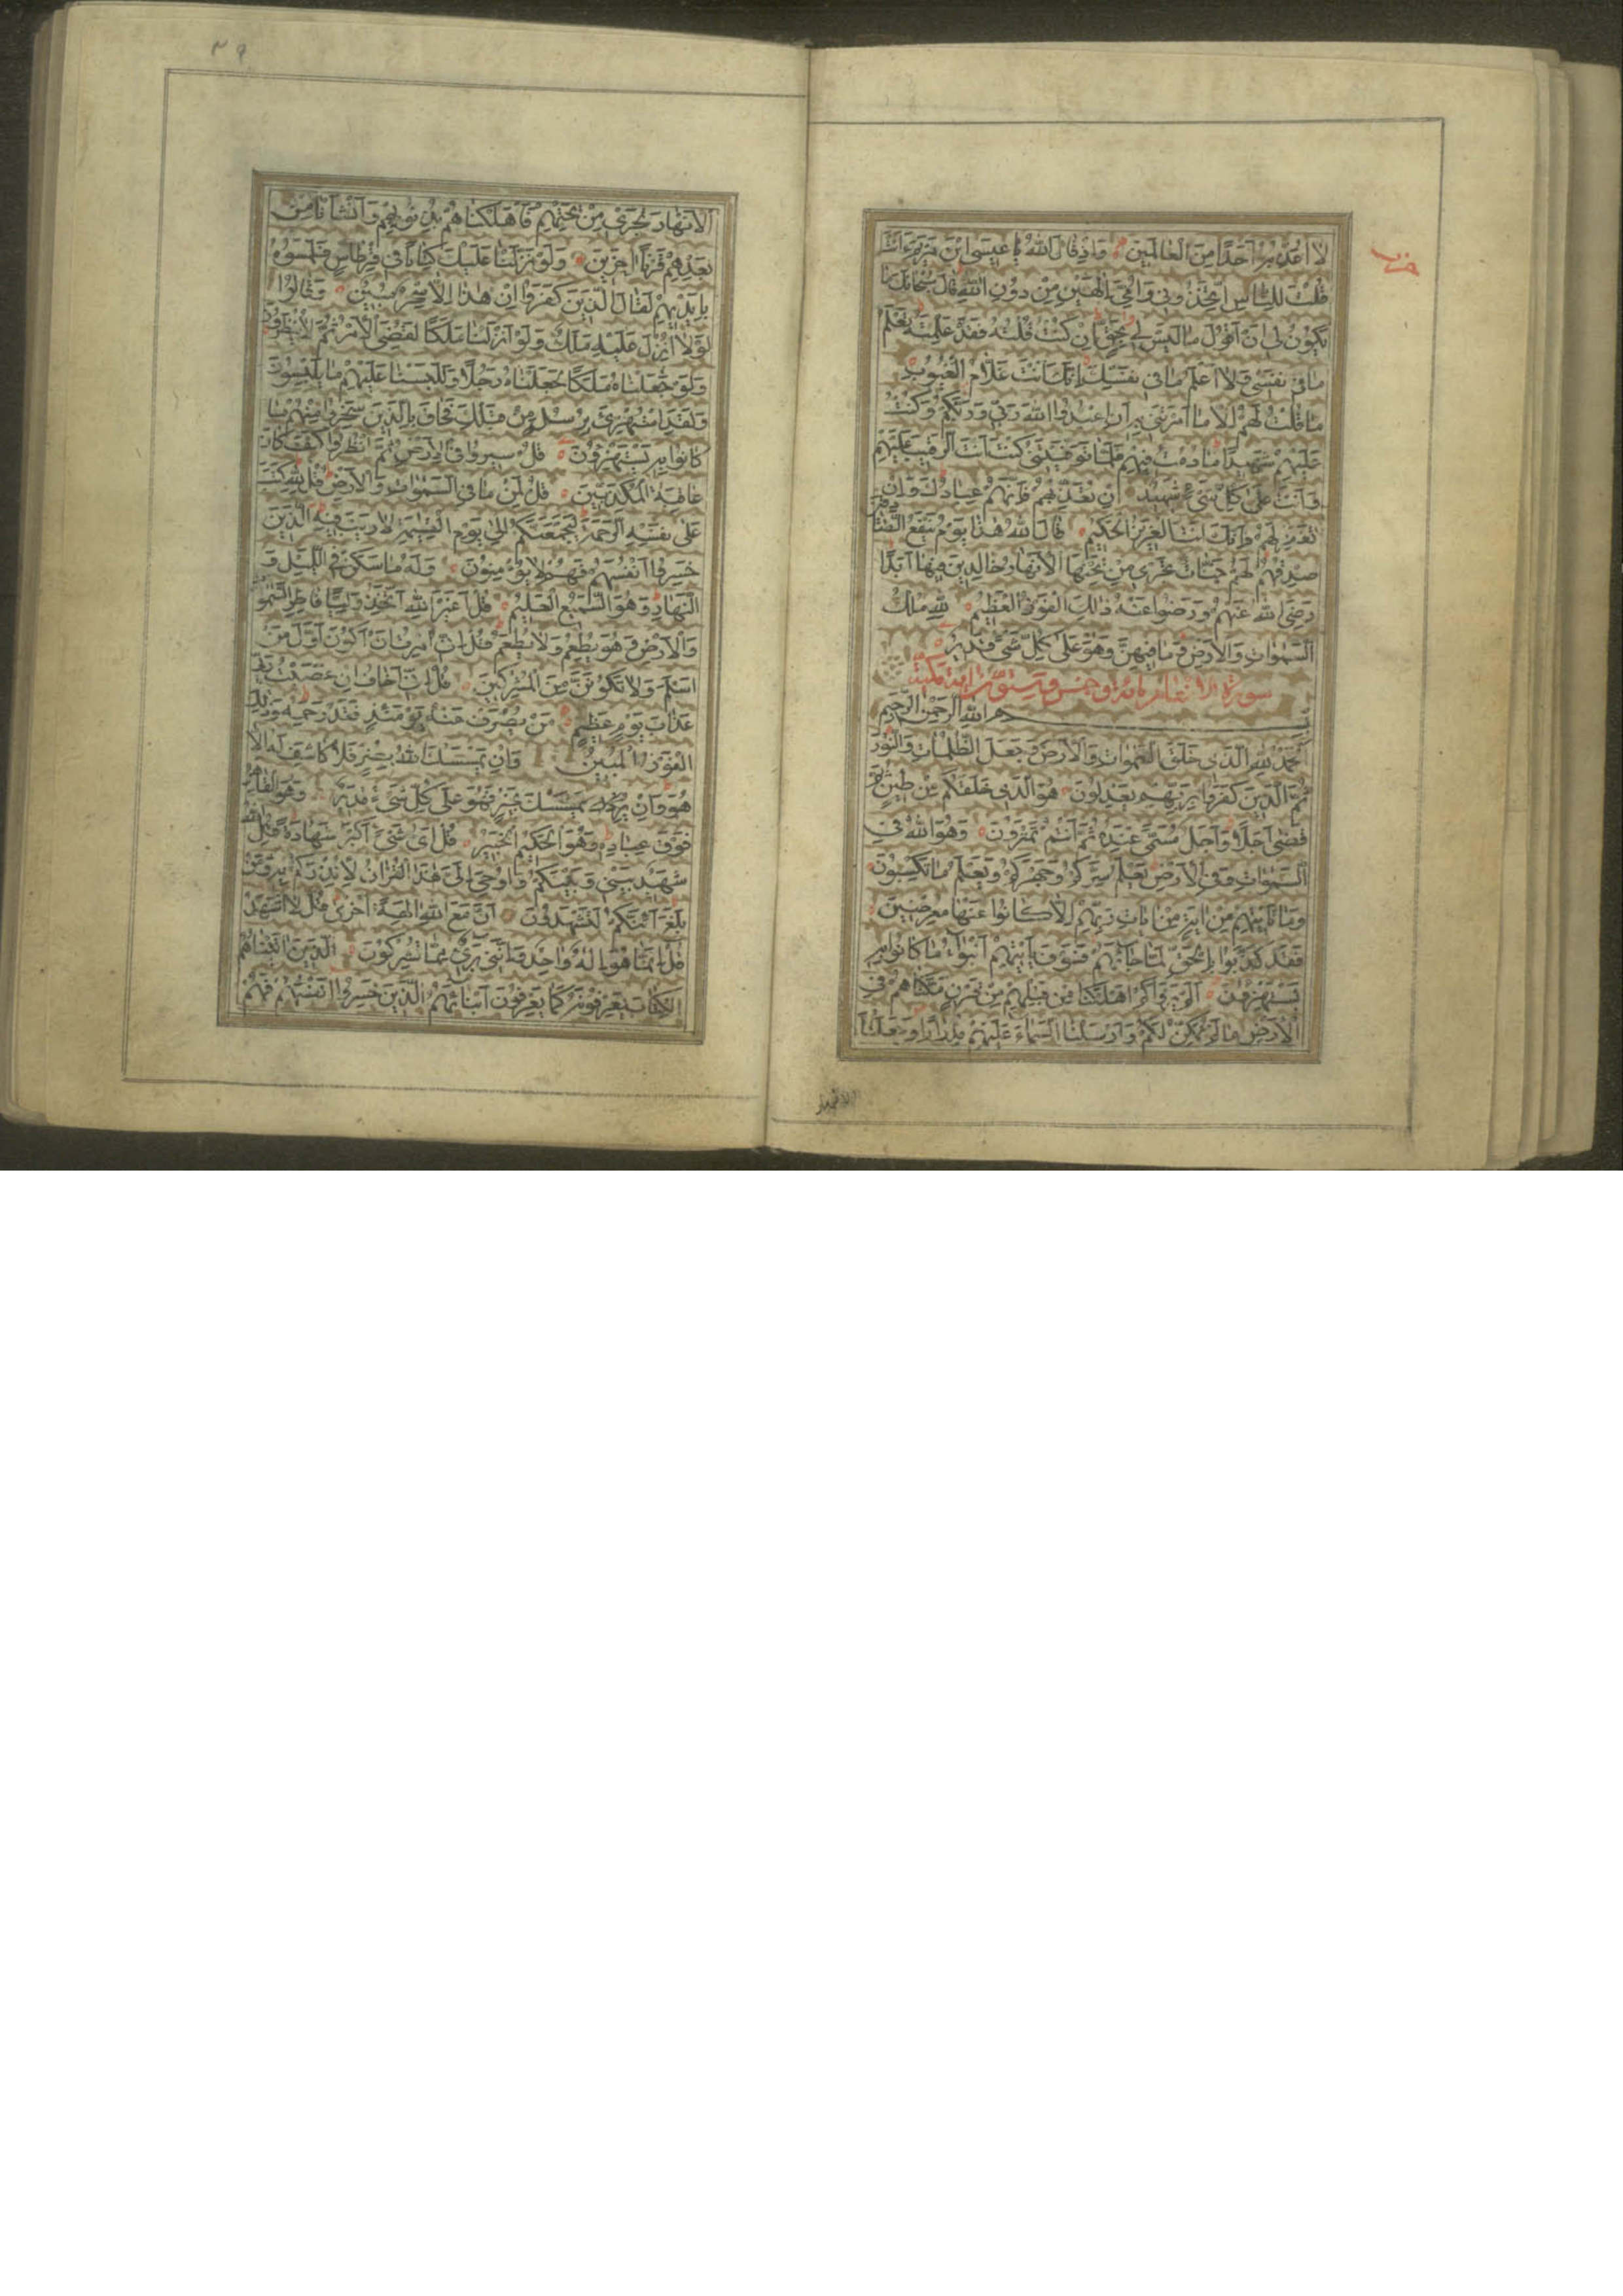 لا اعذبه احدا من العالمين واذ قال الله يا عيسى ابن مريم ءانت
قلت للناس اتخذوني وامي الهين من دون الله قال سبحانك ما
يكون لي ان اقول ما ليس لي بحق ان كنت قلته فقد علمته تعلم
ما في نفسي ولا اعلم ما في نفسك انك انت علام الغيوب
ما قلت لهم الا ما امرتني به ان اعبدوا الله ربي وربكم وكنت
عليهم شهيدا ما دمت فيهم فلما توفيتني كنت انت الرقيب عليهم
وانت على كل شيء شهيد ان تعذبهم فانهم عبادك وان
تغفر لهم فانك انت العزيز الحكيم قال الله هذا يوم ينفع الصادقين
صدقهم لهم جنات تجري من تحتها الانهار خالدين فيها ابدا
رضي الله عنهم ورضوا عنه ذلك الفوز العظيم لله ملك
السموات والارض وما فيهن وهو على كل شيء قدير
سورة الانعام مائة وخمس وستون اية مكية
بسم الله الرحمن الرحيم
الحمد لله الذي خلق السموات والارض وجعل الظلمات والنور
ثم الذين كفروا بربهم يعدلون هو الذي خلقكم من طين ثم
قضى اجلا واجل مسمى عنده ثم انتم تمترون وهو الله في
السموات وفي الارض يعلم سركم وجهركم ويعلم ما تكسبون
وما تاتيهم من اية من ايات ربهم الا كانوا عنها معرضين
فقد كذبوا بالحق لما جاءهم فسوف ياتيهم انبؤا ما كانوا به
يستهزؤن الم يروا كم اهلكنا من قبلهم من قرن مكناهم في
الارض ما لم نمكن لكم وارسلنا السماء عليهم مدرارا وجعلنا
الانهار
حزب
٣٩
الانهار تجري من تحتهم فاهلكناهم بذنوبهم وانشانا من
بعدهم قرنا اخرين ولو نزلنا عليك كتابا في قرطاس فلمسوه
بايديهم لقال الذين كفروا ان هذا الا سحر مبين وقالوا
لولا انزل عليه ملك ولو انزلنا ملكا لقضي الامر ثم لا ينظرون
ولو جعلناه ملكا لجعلناه رجلا وللبسنا عليهم ما يلبسون
ولقد استهزئ برسل من قبلك فحاق بالذين سخروا منهم ما
كانوا به يستهزؤن قل سيروا في الارض ثم انظروا كيف كان
عاقبة المكذبين قل لمن ما في السموات والارض قل لله كتب
على نفسه الرحمة ليجمعنكم الى يوم القيمة لا ريب فيه الذين
خسروا انفسهم فهم لا يؤمنون وله ما سكن في الليل و
النهار وهو السميع العليم قل اغير الله اتخذ وليا فاطر السموات
والارض وهو يطعم ولا يطعم قل اني امرت ان اكون اول من
اسلم ولا تكونن من المشركين قل اني اخاف ان عصيت ربي
عذاب يوم عظيم من يصرف عنه يومئذ فقد رحمه وذلك
الفوز المبين وان يمسسك الله بضر فلا كاشف له الا
هو وان يمسسك بخير فهو على كل شيء قدير وهو القاهر
فوق عباده وهو الحكيم الخبير قل اي شيء اكبر شهادة قل الله
شهيد بيني وبينكم واوحي الي هذا القران لانذركم به ومن
بلغ ائنكم لتشهدون ان مع الله الهة اخرى قل لا اشهد
قل انما هو اله واحد وانني بريء مما تشركون الذين اتيناهم
الكتاب يعرفونه كما يعرفون ابناءهم الذين خسروا انفسهم فهم